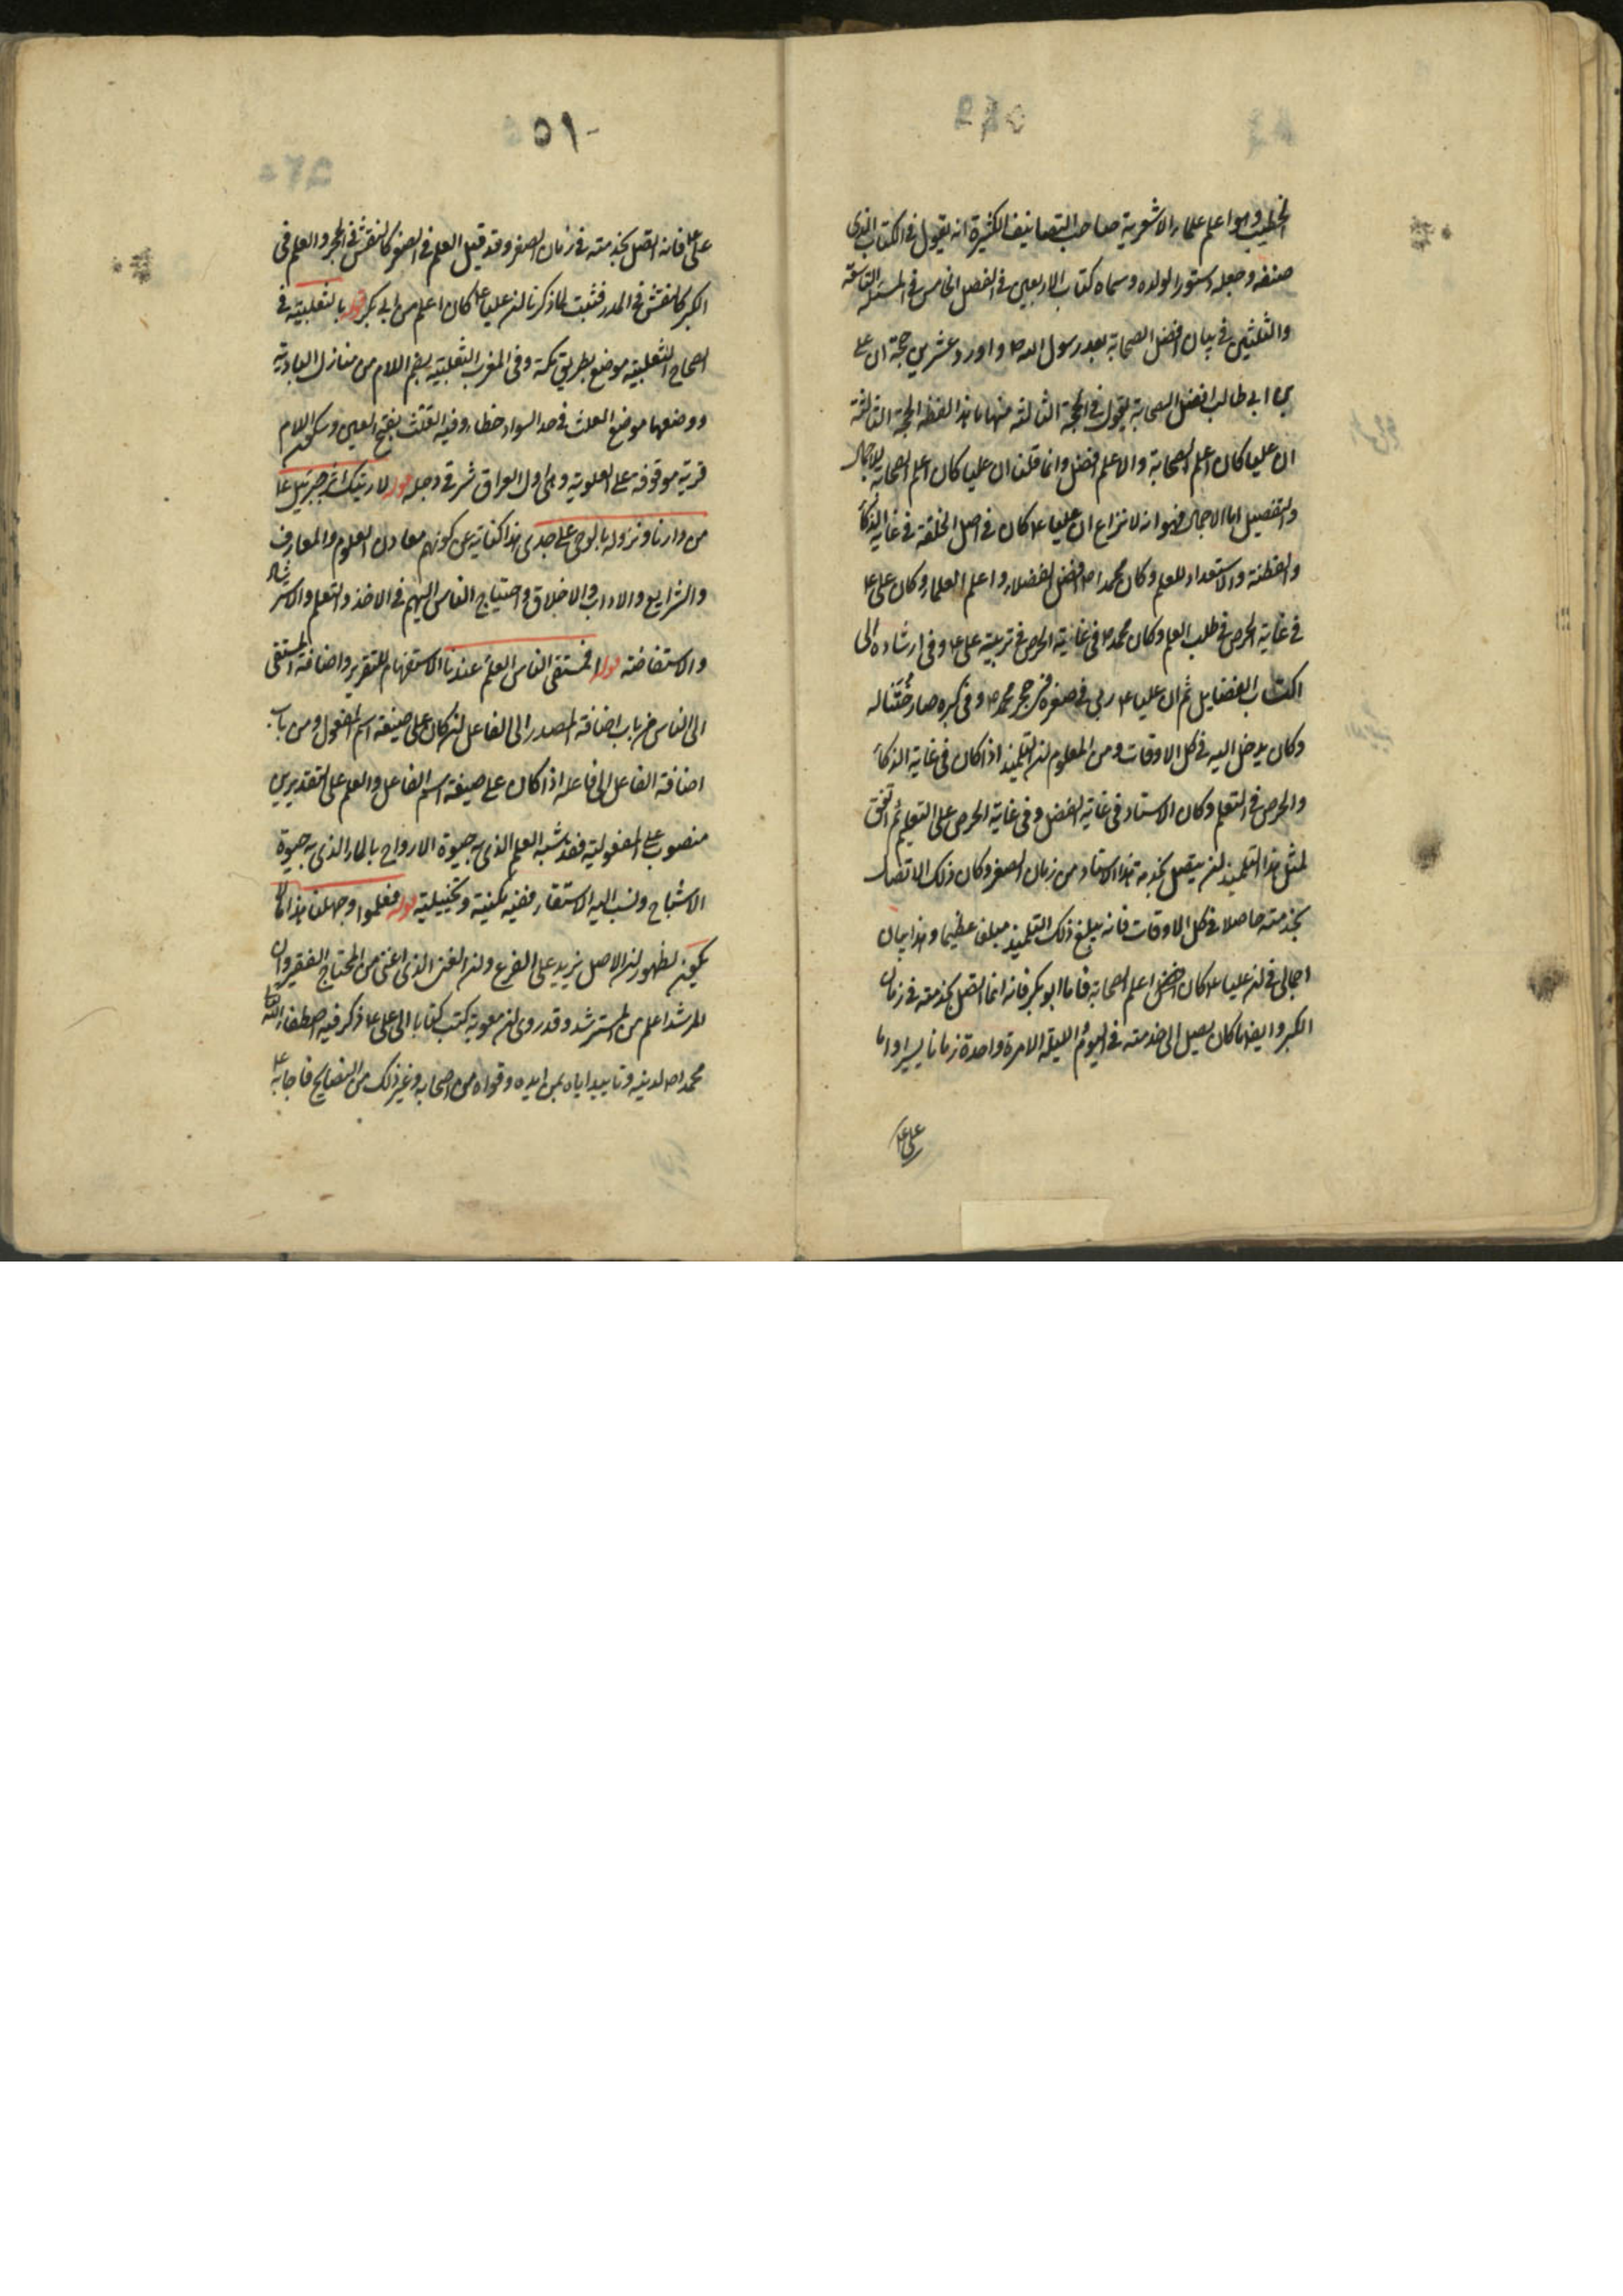 الخطيب وهو اعلم علماء الاشعرية صاحب التصانيف الكثيرة انه يقول في الكتاب الذى
صنفه وجعله دستورا لولده وسماه كتاب الاربعين في الفصل الخامس في المسئلة التاسعة
والثلثين في بيان افضل الصحابة بعد رسول الله ص واورد عشرين حجة ان على
بن ابى طالب افضل الصحابة يقول في الحجة الثالثة منها ما هذا لفظه الحجة الثالثة
ان عليا كان اعلم الصحابة والاعلم افضل وانما قلنا ان عليا كان اعلم الصحابة للاجمال
والتفصيل اما الاجمال فهو انه لا نزاع ان عليا ع كان في اصل الخلقة في غاية الذكاء
والفطنة والاستعداد للعلم وكان محمد ص افضل الفضلاء واعلم العلماء وكان على ع
في غاية الحرص في طلب العلم وكان محمد ص في غاية الحرص في تربية على ع وفي ارشاده الى
اكتساب الفضايل ثم ان عليا ع ربى في صغره في حجر محمد ص وفي كبره صار ختنا له
وكان يدخل اليه في كل الاوقات ومن المعلوم ان التلميذ اذا كان في غاية الذكاء
والحرص في التعلم وكان الاستاد في غاية الفضل وفي غاية الحرص على التعليم ثم اتفق
لمثل هذا التلميذ ان يتصل بخدمة هذا الاستاد من زمان الصغر وكان ذلك الاتصال
بخدمته حاصلا في كل الاوقات فانه يبلغ ذلك التلميذ مبلغا عظيما وهذا بيان
اجمالى في ان عليا ع كان افضل اعلم الصحابة فاما ابو بكر فانه انما اتصل بخدمته في زمان
الكبر وايضا ما كان يصل الى خدمته في اليوم والليلة الا مرة واحدة زمانا يسيرا واما
على ع
٥١٠
على ع فانه اتصل بخدمته في زمان الصغر وقد قيل العلم في الصغر كالنقش في الحجر والعلم في
الكبر كالنقش في المدر فثبت لما ذكرنا ان عليا ع كان اعلم من ابى بكر قوله بالثعلبية في
الصحاح الثعلبية موضع بطريق مكة وفي المغرب الثعلبية بضم اللام من منازل البادية
ووضعها موضع العلث في حد السواد خطاء وفيه العلث بفتح العين وسكون اللام
قرية موقوفة على العلوية وهى اول العراق شرقى دجله قوله لاريتك اثر جبرئيل ع
من دارنا ونزوله بالوحى على جدى هذا كناية عن كونهم معادن العلوم والمعارف
والشرايع والاداب والاخلاق واحتياج الناس اليهم في الاخذ والتعلم والاسترشاد
والاستفاضة قوله افمستقى الناس العلم عندنا الاستفهام للتقرير واضافة المستقى
الى الناس من باب اضافة المصدر الى الفاعل ان كان على صيغة اسم المفعول ومن باب
اضافة الفاعل الى فاعله اذا كان على صيغة اسم الفاعل والعلم على التقديرين
منصوب على المفعولية فقد شبه العلم الذى به حيوة الارواح بالماء الذى به حيوة
الاشباح ونسب اليه الاستقاء ففيه مكنية وتخييلية قوله فعلموا وجهلنا هذا ما لا
يكون لظهور ان الاصل يزيد على الفرع وان الغنى الذى اغنى من المحتاج الفقير وان
المرشد اعلم من المسترشد وقد روى ان معوية كتب كتابا الى على ع ذكر فيه اصطفاء الله تعالى
محمدا ص لدينه وتاييد اياه بمن ايده وقواه من اصحابه وغير ذلك من النصايح فاجابه ع